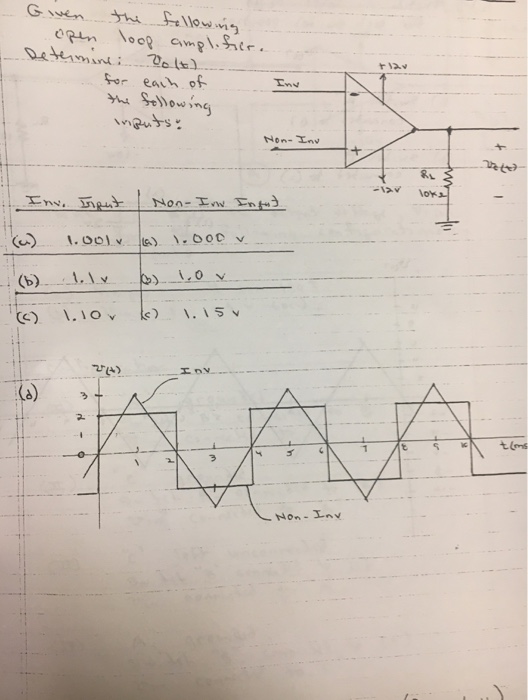 Given the following
open loop amplifier.
Determine: vo(t)
for each of
the following
inputs:
+12v
Inv
-
Non-Inv
+
-12v
RL
10KΩ
+
vo(t)
-
Inv. Input Non-Inv Input
(a) 1.001 v (a) 1.000 v
(b) 1.1 v (b) 1.0 v
(c) 1.10 v (c) 1.15 v
(d)
v(t)
Inv
3
2
1
0
1 2 3 4 5 6 7 8 9 10 t(ms
Non-Inv